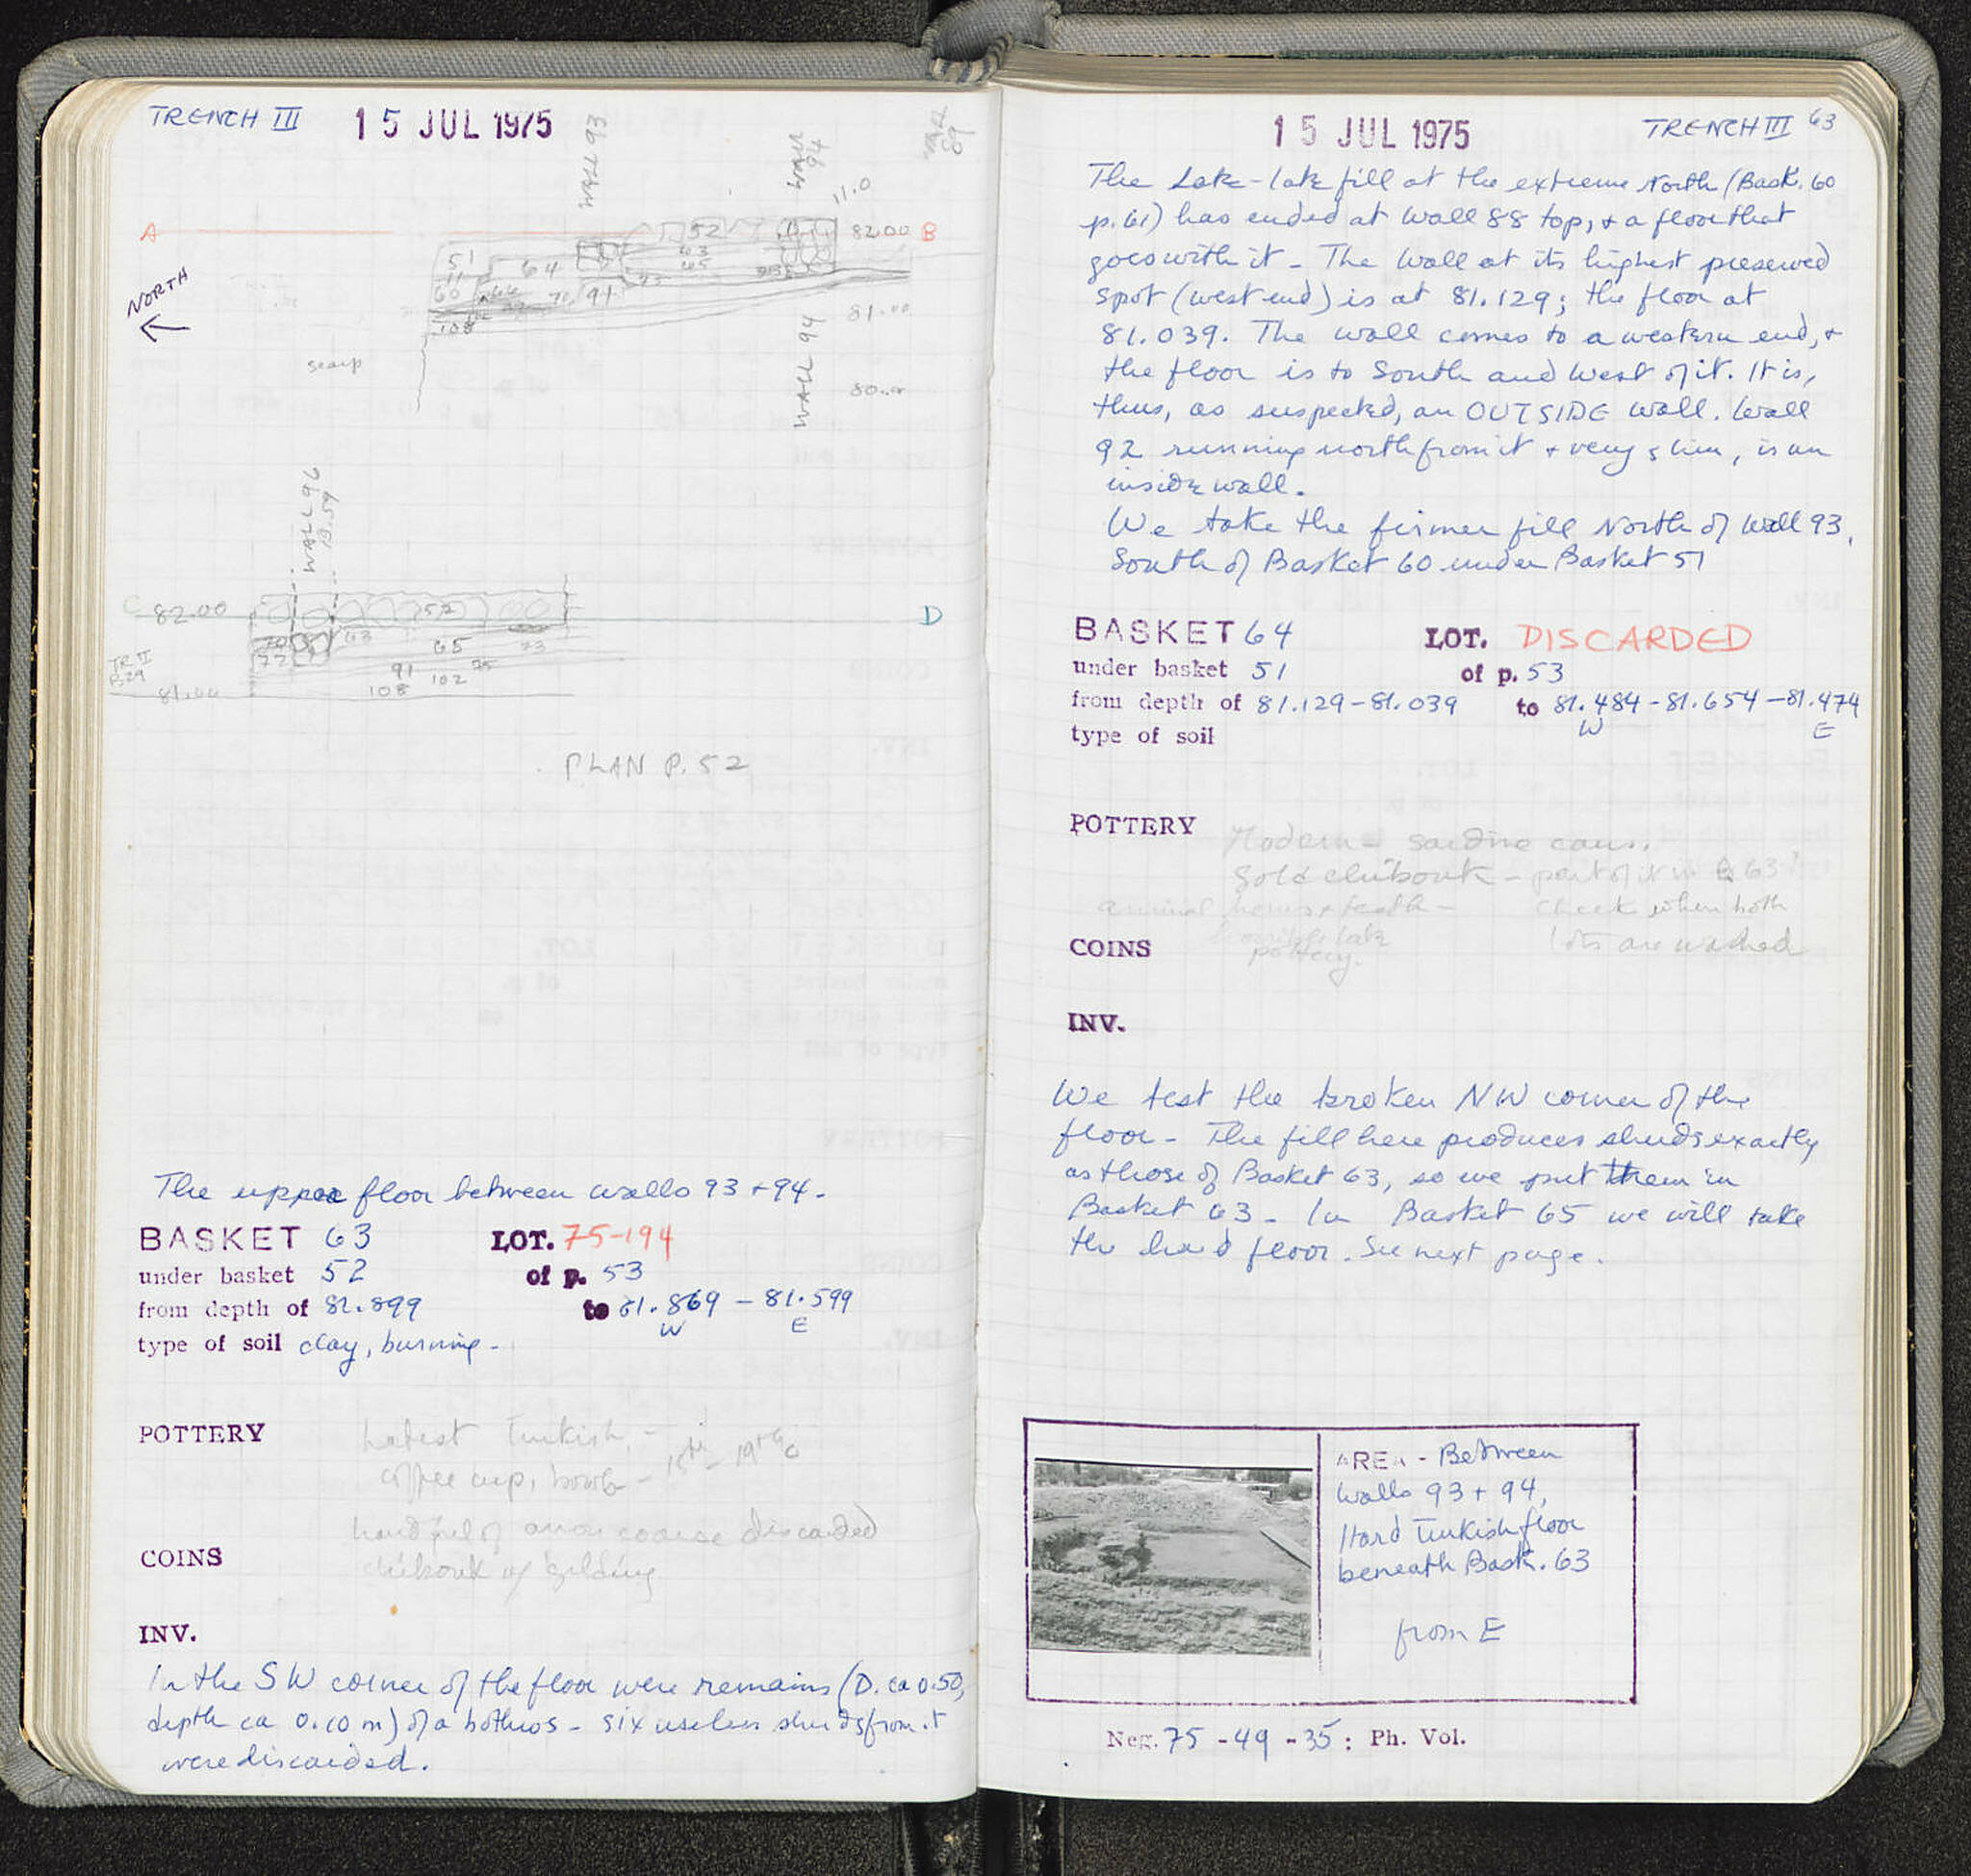 TRENCH III 15 JUL 1975
WALL 93
WALL 94
WALL 89
11.0
A 52 82.00 B
51 64 63
65
60 70 91
NORTH
108
81.00
WALL 94
scarp
80.00
WALL 96
C 82.00 52 D
63 65 73
77
TR II
B29
91 102 75
108
81.00
PLAN P. 52
The upper floor between walls 93 + 94.
BASKET 63 LOT. 75-194
under basket 52 of p. 53
from depth of 81.899 to 81.869 - 81.599
W E
type of soil clay, burning.
POTTERY Latest Turkish, -
coffee cup, bowls - 18th - 19th c
handful of anon coarse discarded
COINS chibouk w/ gilding
INV.
In the SW corner of the floor were remains (D. ca 0.50,
depth ca 0.10 m) of a bothros - six useless sherds from it
were discarded.
15 JUL 1975 TRENCH III 63
The late-late fill at the extreme North (Bask. 60
p. 61) has ended at Wall 88 top, + a floor that
goes with it - The wall at its highest preserved
spot (west end) is at 81.129; the floor at
81.039. The wall comes to a western end, +
the floor is to South and West of it. It is,
thus, as suspected, an OUTSIDE wall. Wall
92 running north from it + very slim, is an
inside wall.
We take the firmer fill North of Wall 93,
South of Basket 60 under Basket 51
BASKET 64 LOT. DISCARDED
under basket 51 of p. 53
from depth of 81.129-81.039 to 81.484-81.654-81.474
W E
type of soil
POTTERY Modern - sardine cans.
Gold chibouk - part of it in B 63?
animal bones + teeth - check when both
lots are washed
COINS pottery.
INV.
We test the broken NW corner of the
floor - The fill here produces sherds exactly
as those of Basket 63, so we put them in
Basket 63 - In Basket 65 we will take
the hard floor. See next page.
AREA - Between
Walls 93 + 94,
Hard Turkish floor
beneath Bask. 63
from E
Neg. 75-49-35: Ph. Vol.